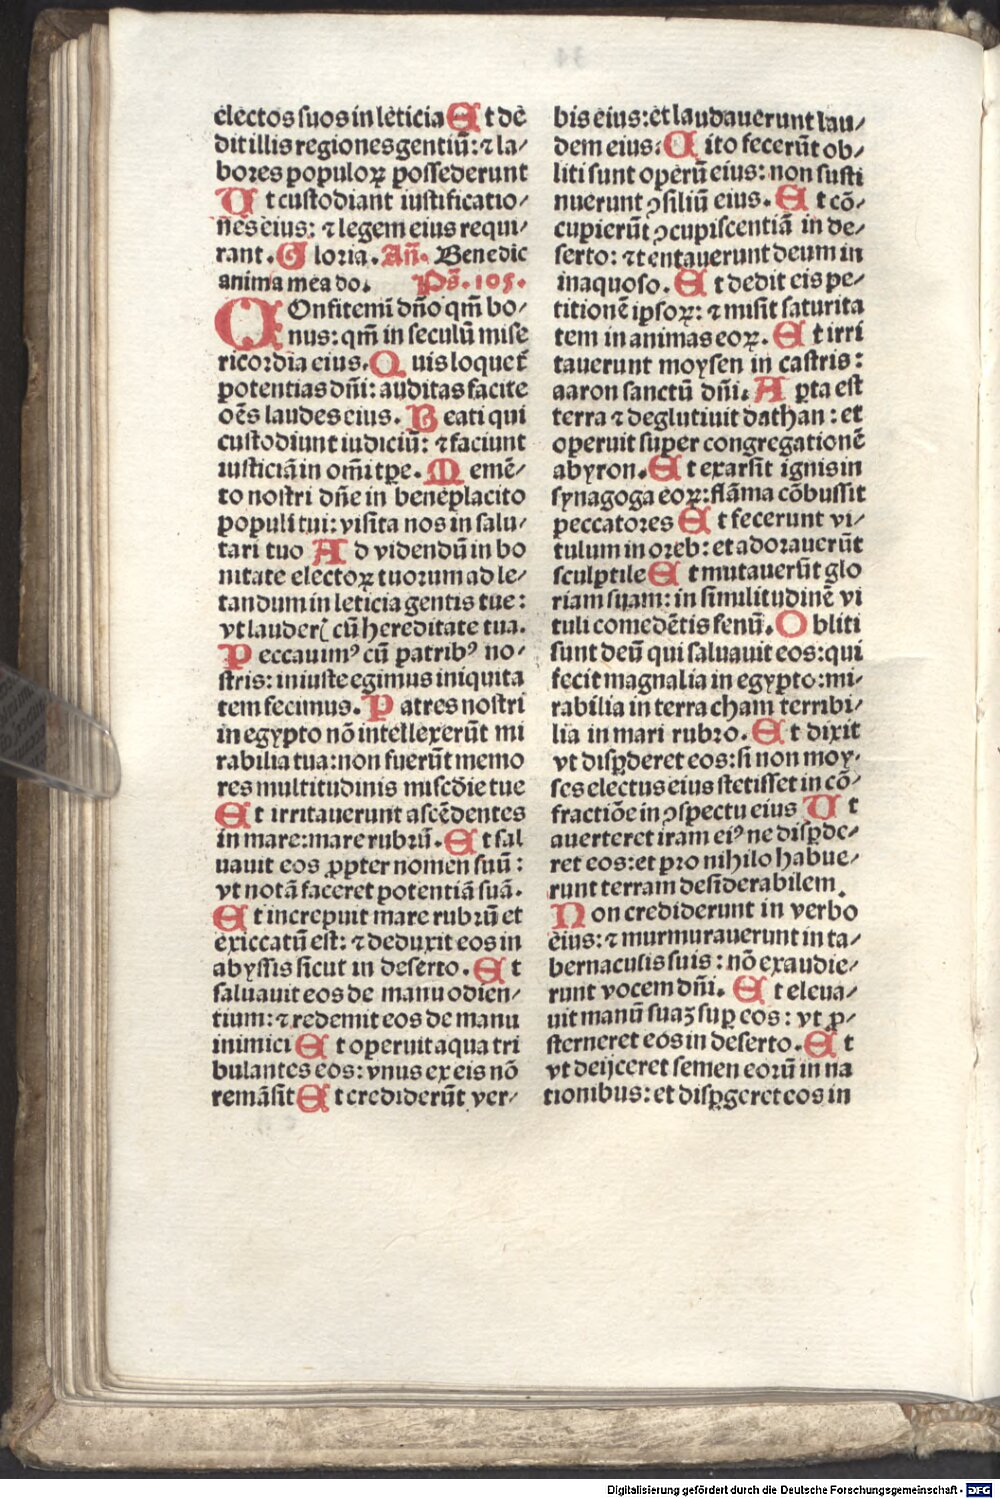 electos suos in leticia Et de
dit illis regiones gentiū: ⁊ la⸗
bores populoꝝ possederunt
Ut custodiant iustificatio⸗
nes eius: ⁊ legem eius requi⸗
rant. Gloria. Añ. Benedic
anima mea do. Ps̄. 105.
COnfitemī dño qm̄ bo⸗
nus: qm̄ in seculū mise
ricordia eius. Quis loquet̄
potentias dñi: auditas faciet
oēs laudes eius. Beati qui
custodiunt iudiciū: ⁊ faciunt
iusticiā in om̄i tpe. Memē⸗
to nostri dñe in beneplacito
populi tui: visita nos in salu⸗
tari tuo Ad videndū in bo
nitate electoꝝ tuorum ad le⸗
tandum in leticia gentis tue:
vt lauderꝭ cū hereditate tua.
Peccauimꝰ cū patribꝰ no⸗
stris: iniuste egimus iniquita
tem fecimus. Patres nostri
in egypto nō intellexerūt mi
rabilia tua: non fuerūt memo
res multitudinis miscd̄ie tue
Et irritauerunt ascēdentes
in mare: mare rubrū. Et sal
uauit eos ꝓpter nomen suū:
vt notā faceret potentiā suā.
Et increpuit mare rubrū et
exiccatū est: ⁊ deduxit eos in
abyssis sicut in deserto. Et
saluauit eos de manu odien⸗
tium: ⁊ redemit eos de manu
inimici Et operuit aqua tri
bulantes eos: vnus ex eis nō
remāsit Et crediderūt ver⸗
bis eius: et laudauerunt lau⸗
dem eius. Cito fecerūt ob⸗
liti sunt operū eius: non susti
nuerunt ꝯsiliū eius. Et cō⸗
cupierūt ꝯcupiscentiā in de⸗
serto: ⁊ tentauerunt deum in
inaquoso. Et dedit eis pe⸗
titionē ipsoꝝ: ⁊ misit saturita
tem in animas eoꝝ. Et irri
tauerunt moysen in castris:
aaron sanctū dñi. Apta est
terra ⁊ deglutiuit dathan: et
operuit super congregationē
abyron. Et exarsit ignis in
synagoga eoꝝ: flāma cōbussit
peccatores Et fecerunt vi⸗
tulum in oreb: et adorauerūt
sculptile Et mutauerūt glo
riam suam: in similitudinē vi
tuli comedētis fenū. Obliti
sunt deū qui saluauit eos: qui
fecit magnalia in egypto: mi⸗
rabilia in terra cham terribi⸗
lia in mari rubro. Et dixit
vt disꝑderet eos: si non moy⸗
ses electus eius stetisset in cō⸗
fractiōe in ꝯspectu eius Ut
auerteret iram eiꝰ ne disꝑde⸗
ret eos: et pro nihilo habue⸗
runt terram desiderabilem.
Non crediderunt in verbo
eius: ⁊ murmurauerunt in ta⸗
bernaculis suis: nō exaudie⸗
runt vocem dñi. Et eleua⸗
uit manū suaꝫ suꝑ eos: vt ꝓ⸗
sterneret eos in deserto. Et
vt deijceret semen eorū in na
tionibus: et disꝑgeret eos in
Digitalisierung gefördert durch die Deutsche Forschungsgemeinschaft - DFG